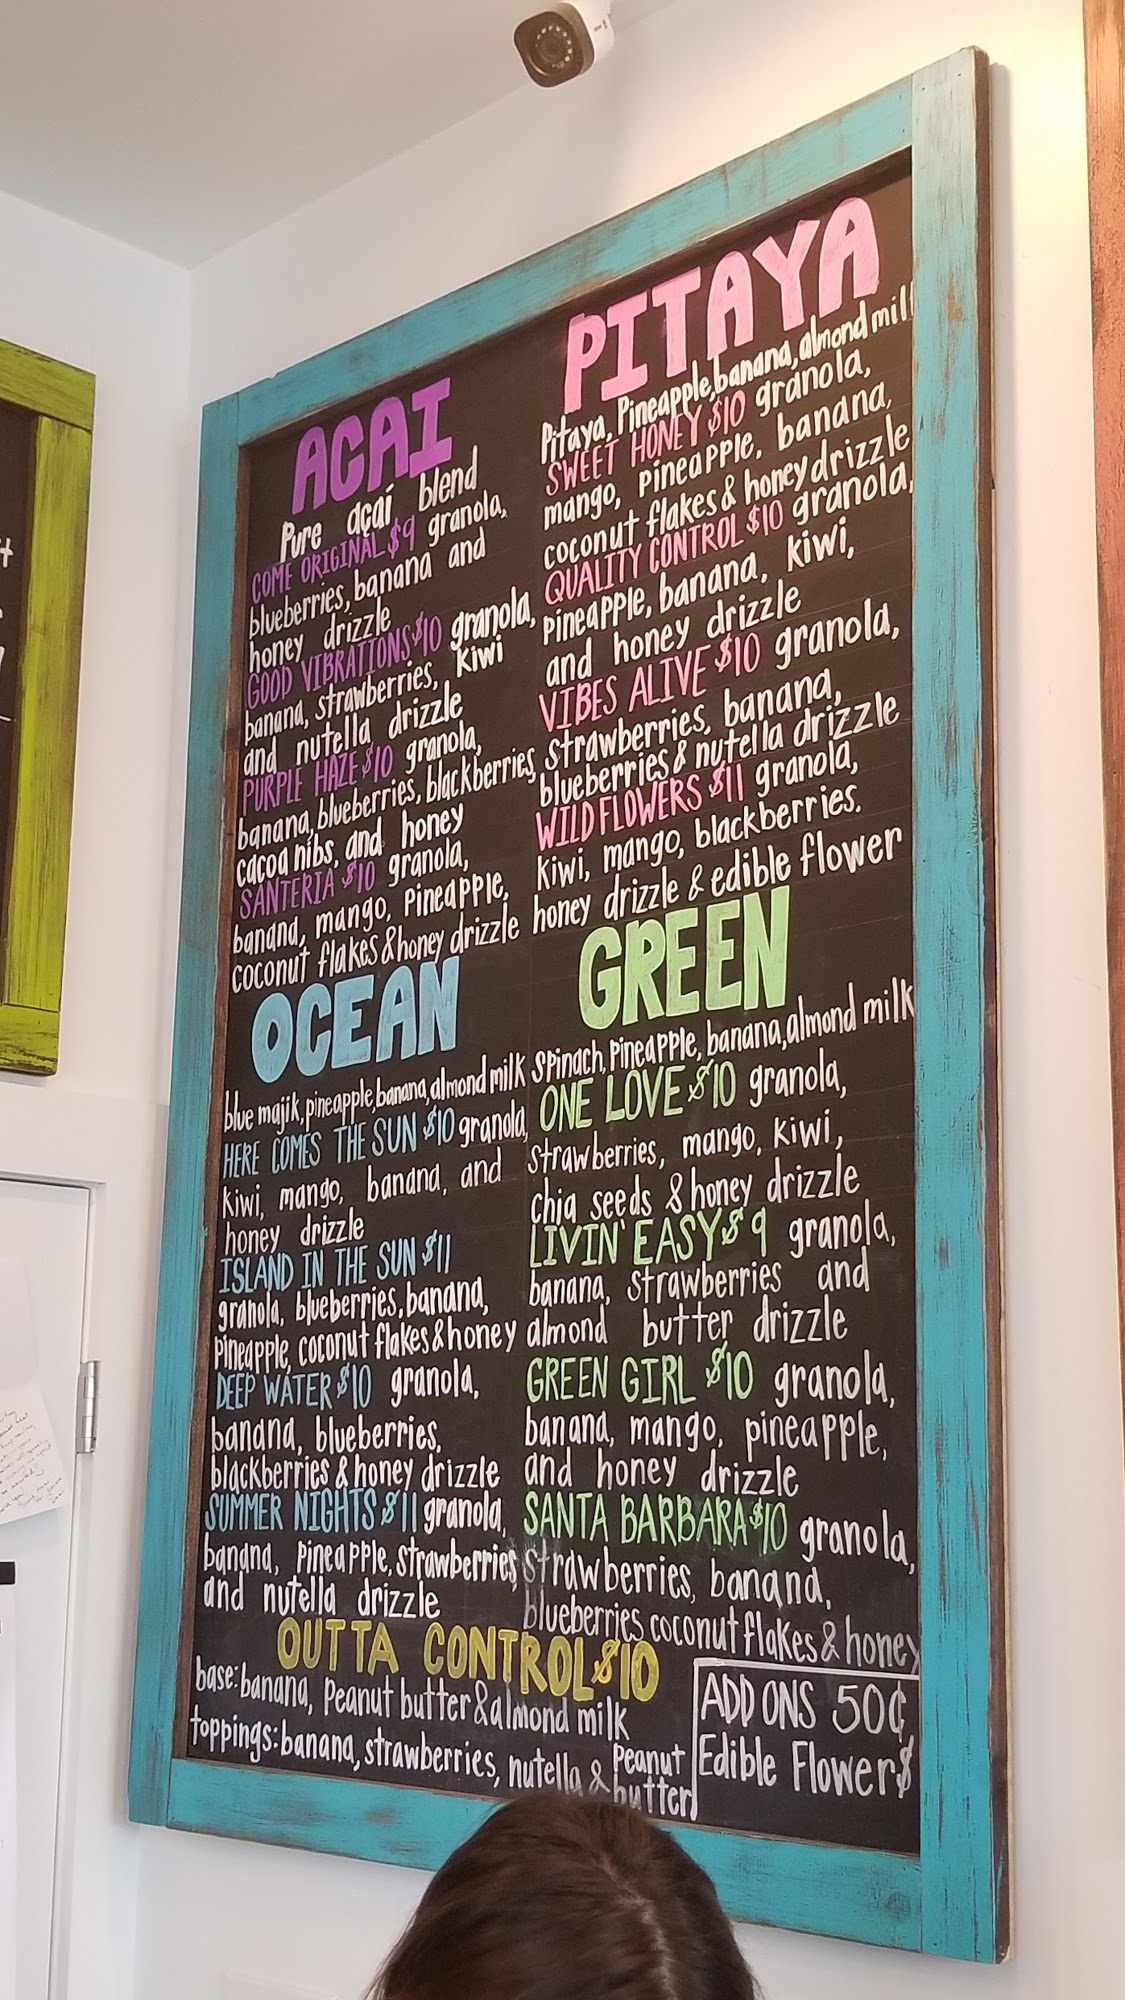 ACAI
Pure açaí blend
COME ORIGINAL $9 granola,
blueberries, banana and
honey drizzle
GOOD VIBRATIONS $10 granola,
banana, strawberries, kiwi
and nutella drizzle
PURPLE HAZE $10 granola,
banana, blueberries, blackberries,
cacoa nibs, and honey
SANTERIA $10 granola,
banana, mango, pineapple,
coconut flakes & honey drizzle
PITAYA
Pitaya, Pineapple, banana, almond milk
SWEET HONEY $10 granola,
mango, pineapple, banana,
coconut flakes & honey drizzle
QUALITY CONTROL $10 granola,
pineapple, banana, kiwi,
and honey drizzle
VIBES ALIVE $10 granola,
strawberries, banana,
blueberries & nutella drizzle
WILD FLOWERS $11 granola,
kiwi, mango, blackberries.
honey drizzle & edible flower
OCEAN
blue majik, pineapple, banana, almond milk
HERE COMES THE SUN $10 granola,
kiwi, mango, banana, and
honey drizzle
ISLAND IN THE SUN $11
granola, blueberries, banana,
pineapple, coconut flakes & honey
DEEP WATER $10 granola,
banana, blueberries,
blackberries & honey drizzle
SUMMER NIGHTS $11 granola,
banana, pineapple, strawberries,
and nutella drizzle
GREEN
spinach, pineapple, banana, almond milk
ONE LOVE $10 granola,
strawberries, mango, kiwi,
chia seeds & honey drizzle
LIVIN' EASY $9 granola,
banana, strawberries and
almond butter drizzle
GREEN GIRL $10 granola,
banana, mango, pineapple,
and honey drizzle
SANTA BARBARA $10 granola,
strawberries, banana,
blueberries coconut flakes & honey
OUTTA CONTROL $10
base: banana, peanut butter & almond milk
toppings: banana, strawberries, nutella & peanut
butter
ADD ONS 50¢
Edible Flower $